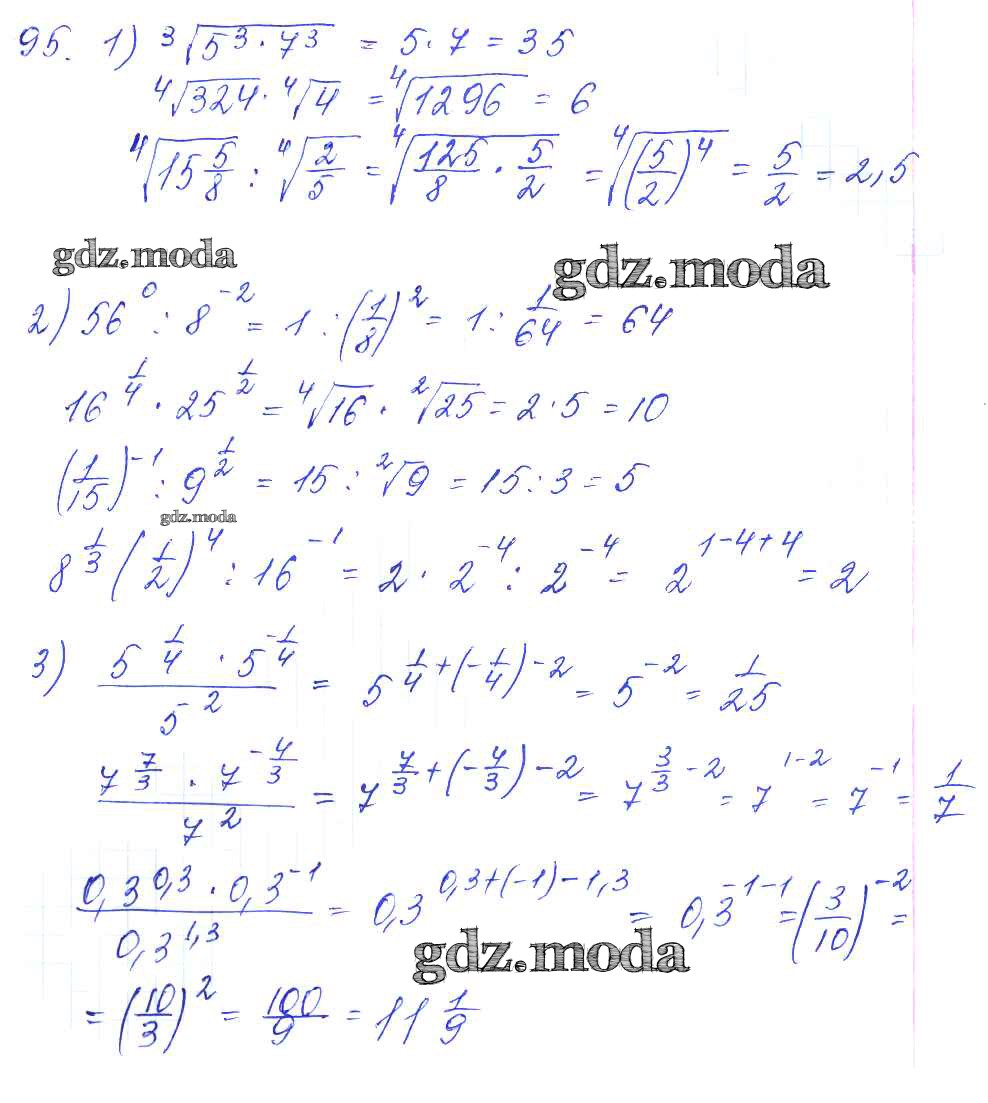 95. 1) ³√(5³·7³) = 5·7 = 35
⁴√324 · ⁴√4 = ⁴√1296 = 6
⁴√(15 5/8) : ⁴√(2/5) = ⁴√(125/8 · 5/2) = ⁴√((5/2)⁴) = 5/2 = 2,5
gdz.moda gdz.moda
2) 56⁰ : 8⁻² = 1 : (1/8)² = 1 : 1/64 = 64
16^(1/4) · 25^(1/2) = ⁴√16 · ²√25 = 2·5 = 10
(1/15)⁻¹ : 9^(1/2) = 15 : ²√9 = 15 : 3 = 5
gdz.moda
8^(1/3) (1/2)⁴ : 16⁻¹ = 2 · 2⁻⁴ : 2⁻⁴ = 2^(1-4+4) = 2
3) (5^(1/4) · 5^(-1/4))/5² = 5^(1/4+(-1/4)-2) = 5⁻² = 1/25
(7^(7/3) · 7^(-4/3))/7² = 7^(7/3+(-4/3)-2) = 7^(3/3-2) = 7^(1-2) = 7⁻¹ = 1/7
(0,3^(0,3) · 0,3⁻¹)/0,3^(1,3) = 0,3^(0,3+(-1)-1,3) = 0,3^(-1-1) = (3/10)⁻² =
gdz.moda
= (10/3)² = 100/9 = 11 1/9